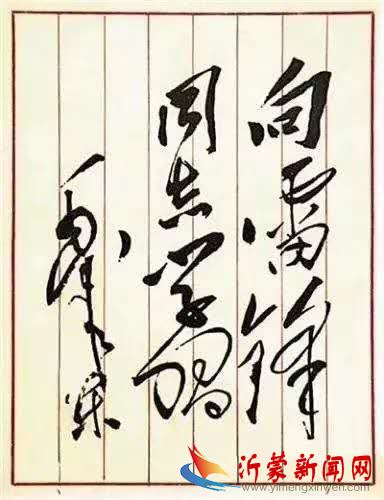 向雷锋
同志学习
毛泽东
沂蒙新闻网
www.yimengxinwen.com